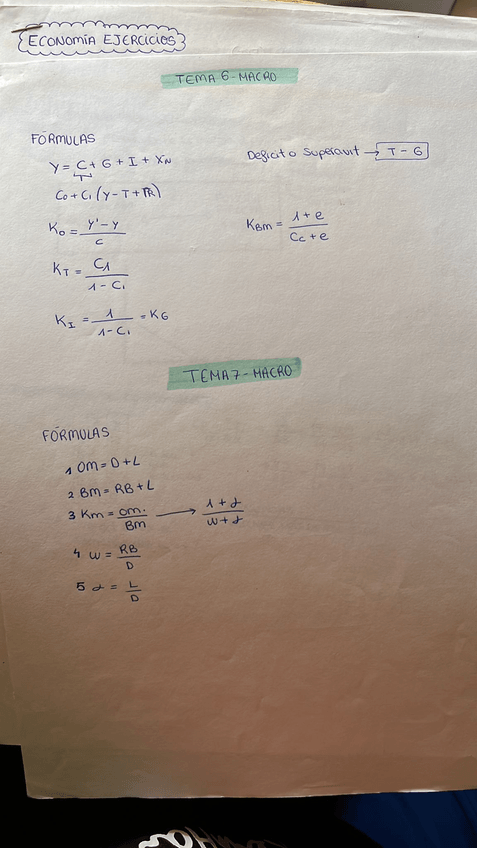 ECONOMÍA EJERCICIOS
TEMA 6 - MACRO
FÓRMULAS
Y = C + G + I + XN
C0 + C1 (Y - T + TR)
Deficit o Superavit → T - G
K0 = Y' - Y / C
KBM = 1 + e / Cc + e
KT = C1 / 1 - C1
KI = 1 / 1 - C1 = KG
TEMA 7 - MACRO
FÓRMULAS
1 OM = D + L
2 BM = RB + L
3 Km = OM. / BM → 1 + α / w + α
4 w = RB / D
5 α = L / D